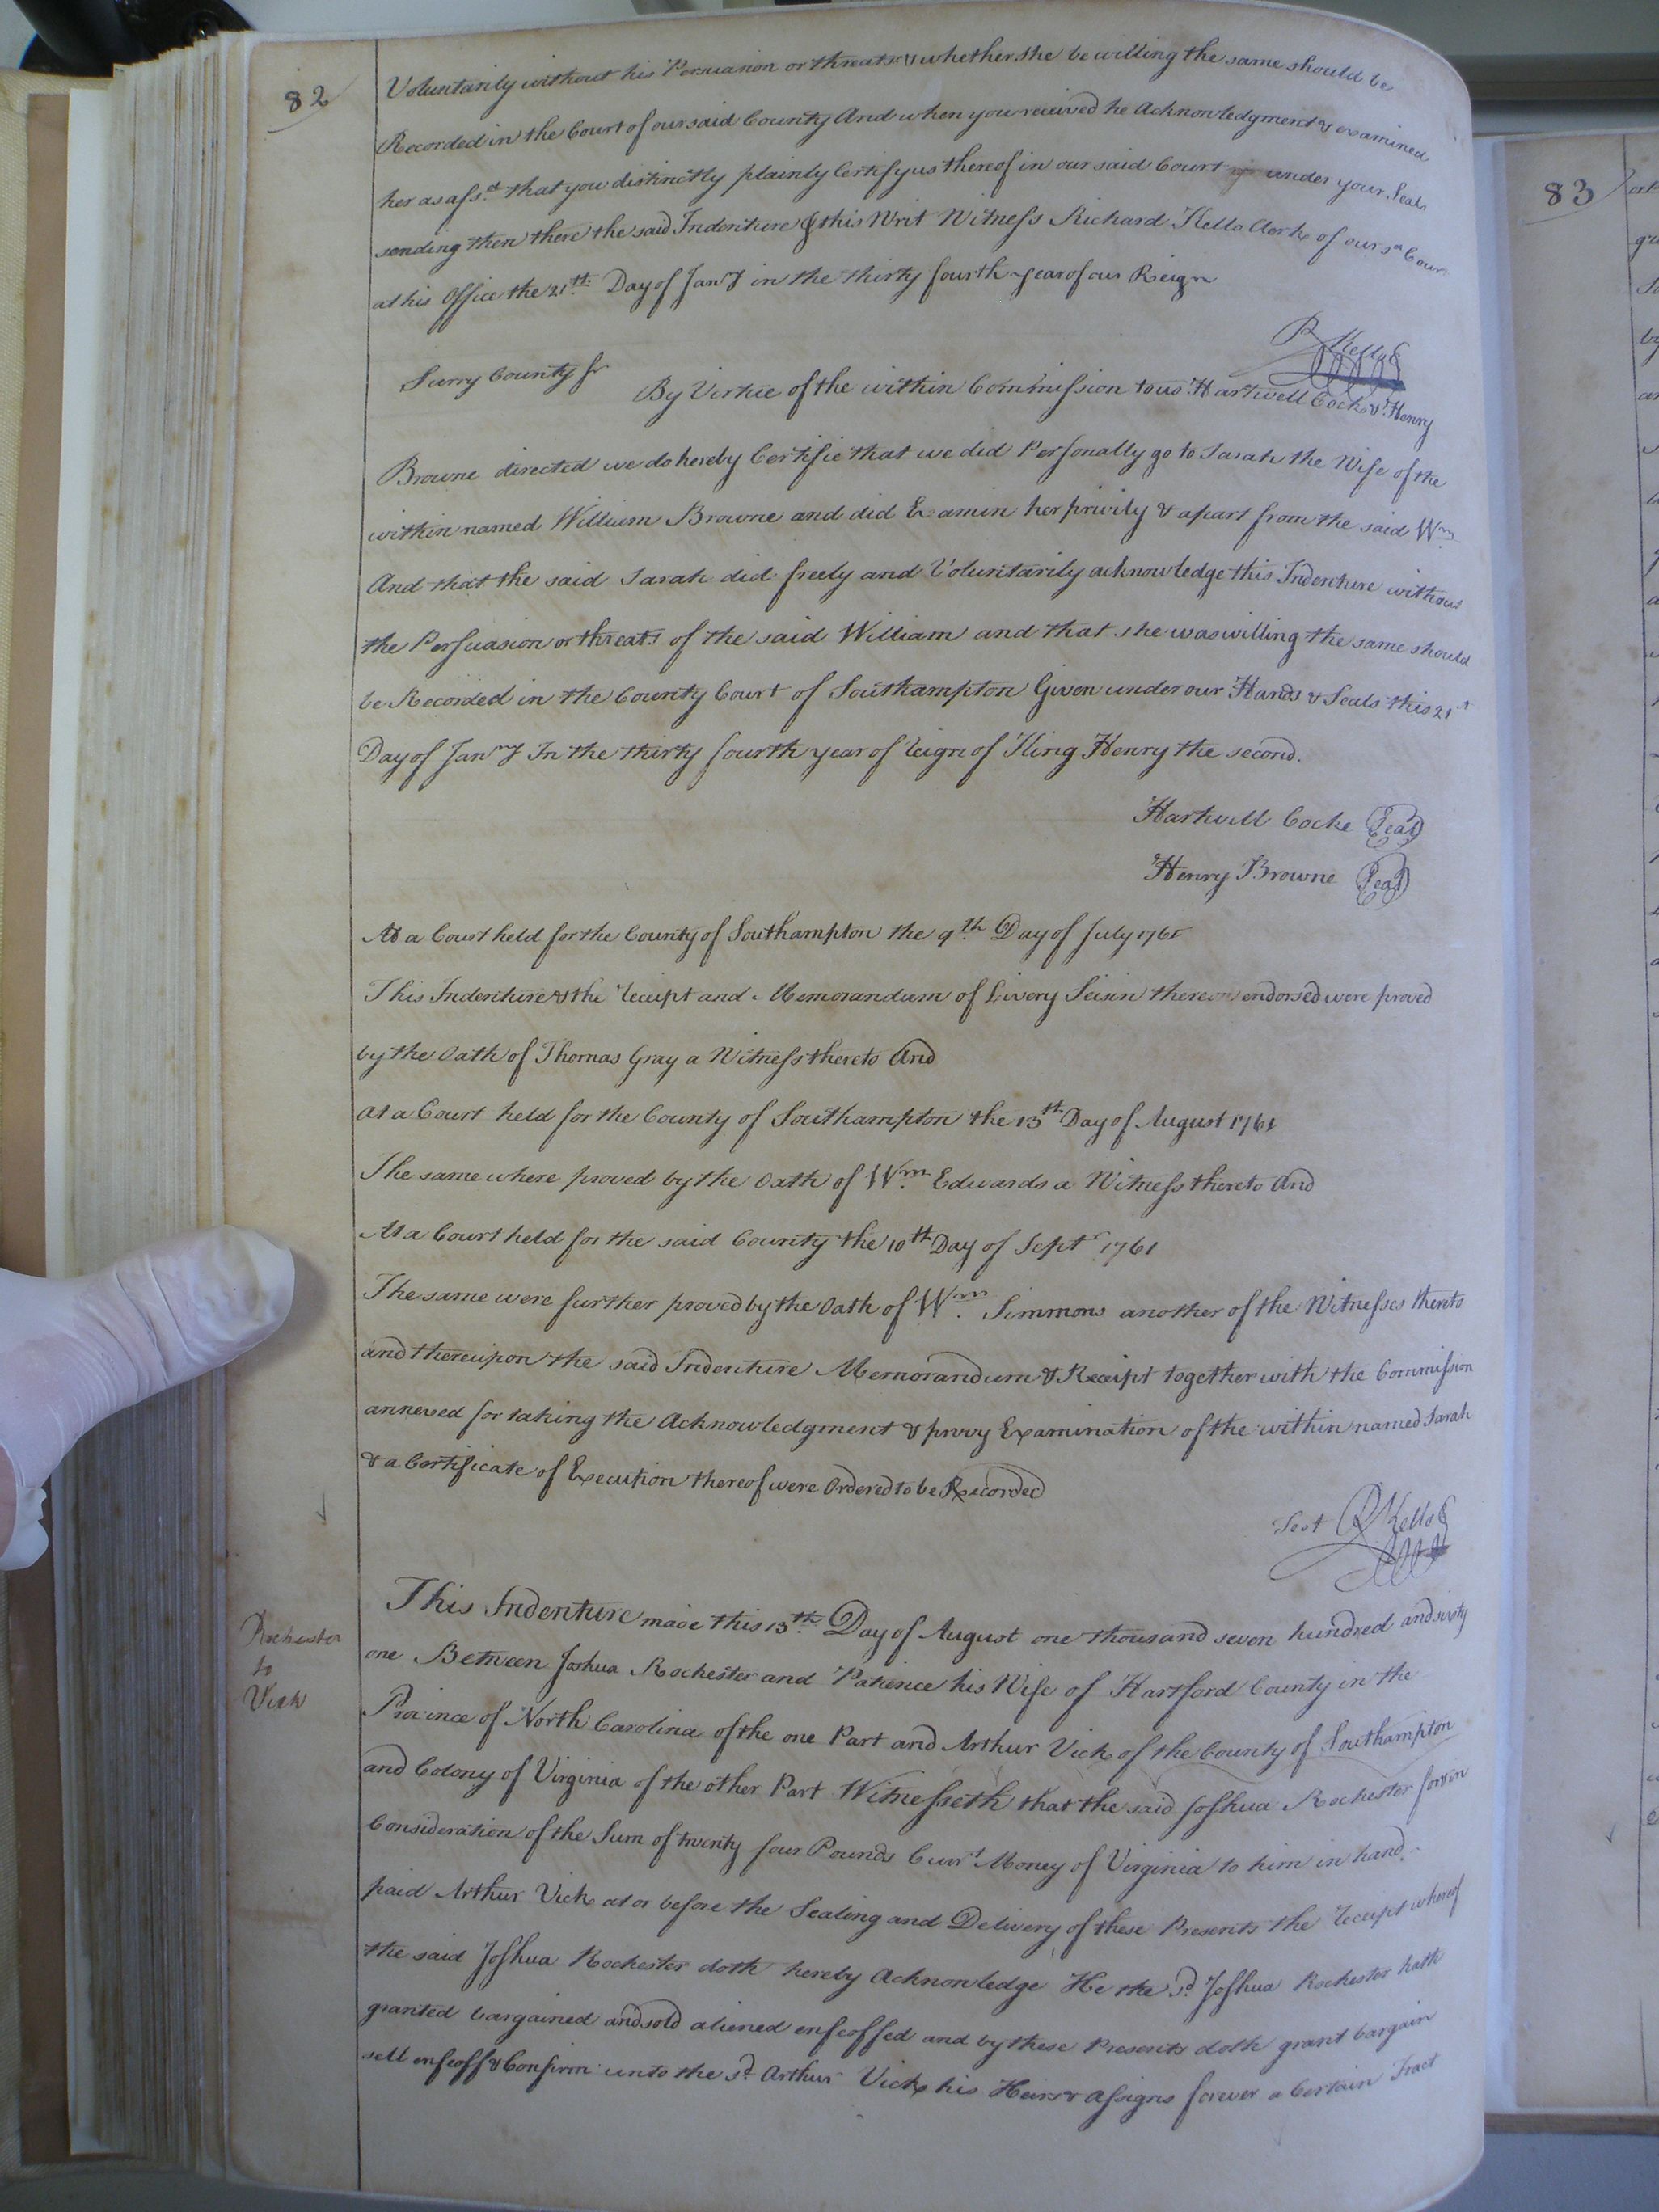 82
Voluntarily without his Persuasion or threats & whether she be willing the same should be
Recorded in the Court of our said County And when you received he Acknowledgment & examined
her as afsd. that you distinctly plainly Certify us thereof in our said Court under your Seals
sending then there the said Indenture & this Writ Witness Richard Kello Clerk of our sd Court
at his Office the 21th Day of Jany in the thirty fourth year of our Reign
R Kello
Surry County sr By Virtue of the within Commission to us Hartwell Cocke & Henry
Browne directed we do hereby Certifie that we did Personally go to Sarah the Wife of the
within named William Browne and did Examin her privily & apart from the said Wm
And that the said Sarah did freely and Voluntarily acknowledge this Indenture without
the Persuasion or threats of the said William and that she was willing the same should
be Recorded in the County Court of Southampton Given under our Hands & Seals this 21st
Day of Janry In the thirty fourth year of Reign of King Henry the second.
Hartwell Cocke Seal
Henry Browne Seal
At a Court held for the County of Southampton the 9th Day of July 1761
This Indenture & the Receipt and Memorandum of Livery Seisin thereon endorsed were proved
by the Oath of Thomas Gray a Witness thereto And
at a Court held for the County of Southampton the 13th Day of August 1761
The same where proved by the Oath of Wm Edwards a Witness thereto And
At a Court held for the said County the 10th Day of Septr 1761
The same were further proved by the Oath of Wm. Simmons another of the Witnesses thereto
and thereupon the said Indenture Memorandum & Receipt together with the Commission
annexed for taking the Acknowledgment & privy Examination of the within named Sarah
& a Certificate of Execution thereof were Ordered to be Recorded
Test R Kello
Rochester
to
Vick
This Indenture made this 13th Day of August one thousand seven hundred and sixty
one Between Joshua Rochester and Patience his Wife of Hartford County in the
Province of North Carolina of the one Part and Arthur Vick of the County of Southampton
and Colony of Virginia of the other Part Witnesseth that the said Joshua Rochester for & in
Consideration of the Sum of twenty four Pounds Currt Money of Virginia to him in hand
paid Arthur Vick at or before the Sealing and Delivery of these Presents the Receipt whereof
the said Joshua Rochester doth hereby Acknowledge He the sd. Joshua Rochester hath
granted bargained and sold aliened enfeoffed and by these Presents doth grant bargain
sell enfeoff & Confirm unto the sd. Arthur Vick his Heirs & Assigns forever a Certain Tract
83